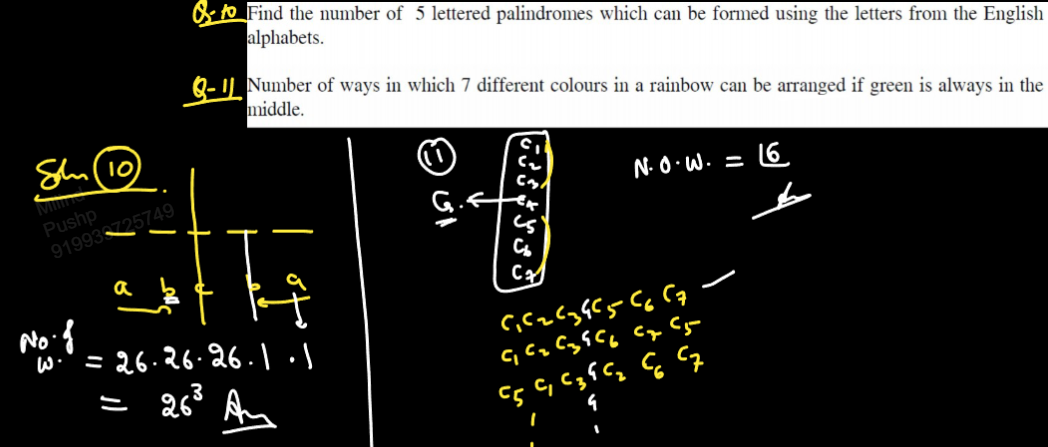 Q-10 Find the number of 5 lettered palindromes which can be formed using the letters from the English
alphabets.
Q-11 Number of ways in which 7 different colours in a rainbow can be arranged if green is always in the
middle.
Soln (10)
Pushp
a b c b a
No. of
W. = 26.26.26.1.1
= 26³ Ans
(11)
C1
C2
C3
G. ← C4
C5
C6
C7
N.O.W. = |6
C1 C2 C3 G C5 C6 C7
C1 C2 C3 G C6 C7 C5
C5 C1 C3 G C2 C6 C7
G